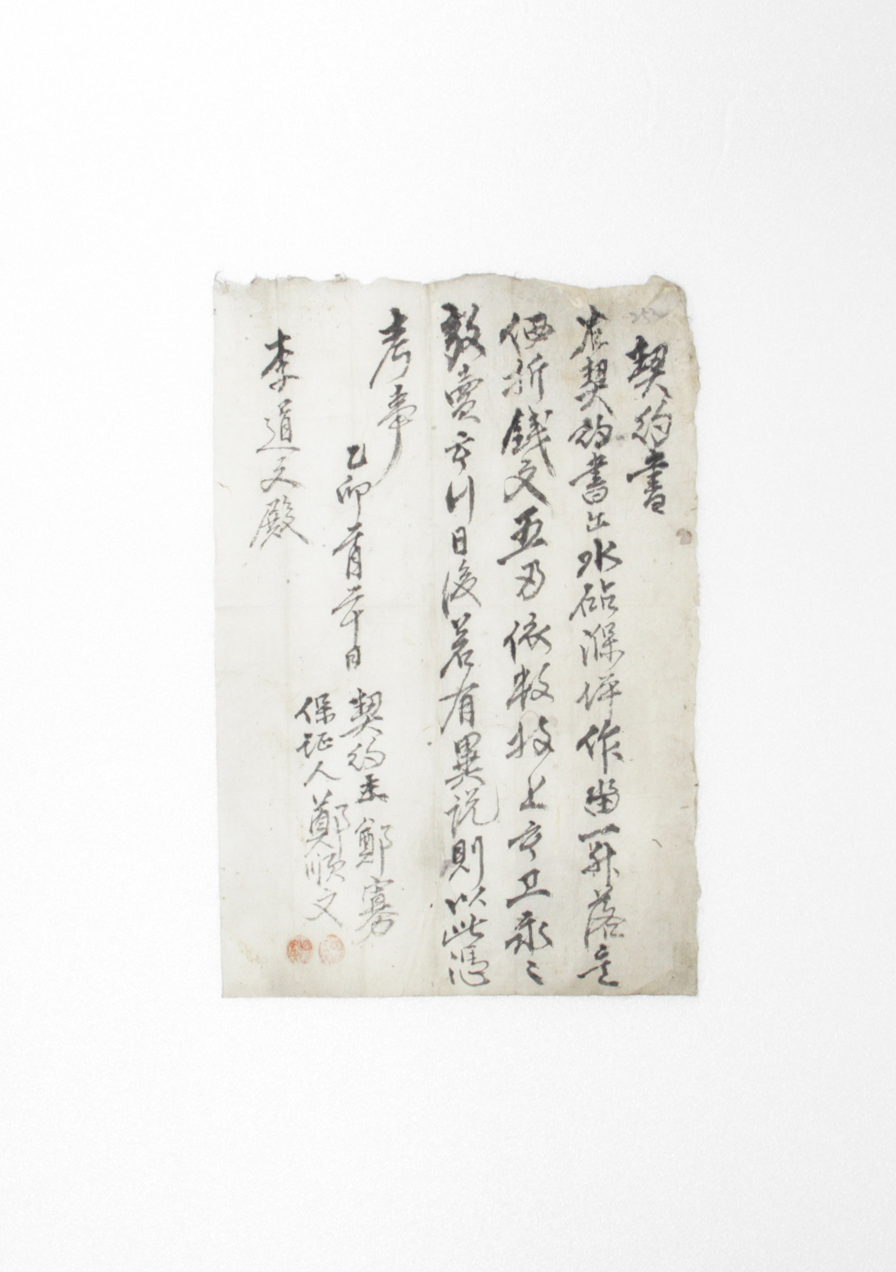 契約書
右契約書匕水砧㵛坪作畓一斗落㐣
価折錢文五刃依數捧上是丆永々
放賣是川日後若有異說則以此憑
考事
乙卯二月二十日
契約主鄭寡
保証人鄭順文
李道文殿